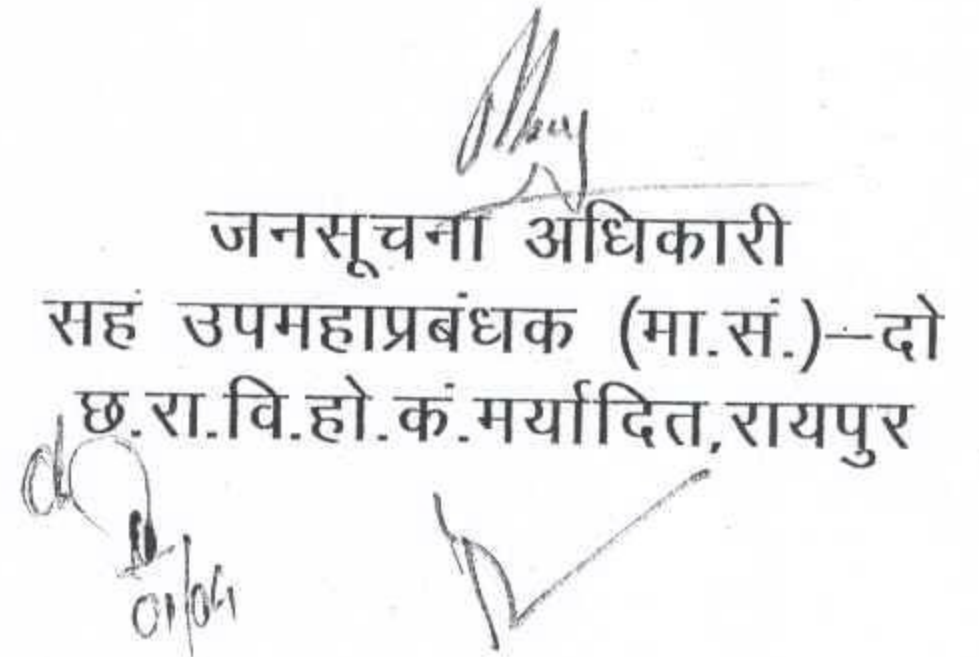 जनसूचना अधिकारी
सह उपमहाप्रबंधक (मा.सं.)–दो
छ.रा.वि.हो.कं.मर्यादित,रायपुर
01/04